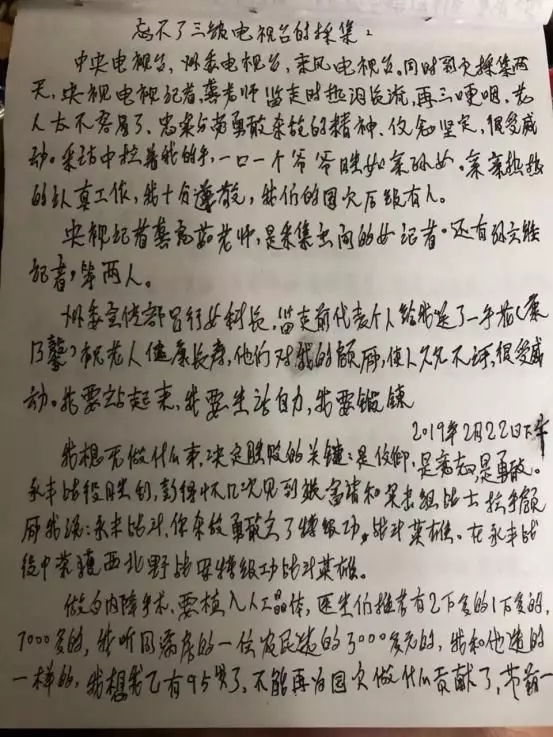 忘不了三级电视台的採集：
中央电视台，州委电视台，来凤电视台。同时到家採集两
天，央视电视记者，龚老师临走时热泪长流，再三哽咽，老
人太不容易了，忠家与英勇敢杀敌的精神、信念坚定，很受感
动。采访中拉着我的手，一口一个爷爷胜如亲孙女。亲亲热热
的认真工作，我十分谨敬，我们的国家后继有人。
央视记者龚老师，是采集空间的女记者。还有孙
记者，等两人。
州委宣传部吕行女科长，临走前代表个人给我送了一手花（康
乃馨）祝老人健康长寿，他们对我的顾，使人久久不，很受感
动。我要站起来，我要生活自力，我要锻鍊
2019年2月22日下午
我想无做什么事，决定胜败的关键：是信仰，是意志，是勇敢。
永丰战役胜利，彭得怀几次见到张富清和突击组战士拉手顾
我说：永丰战斗，你杀敌勇敢立了特级功，战斗英雄。在永丰战
役中荣获西北野战军特级功战斗英雄。
做白内障手术，要植入人工晶体，医生们推荐有2万多的1万多的，
7000多的，我听同病房的一位农民选的3000多元的，我和他选的
一样的，我想我已有95岁了，不能再为国家做什么贡献了，节省一